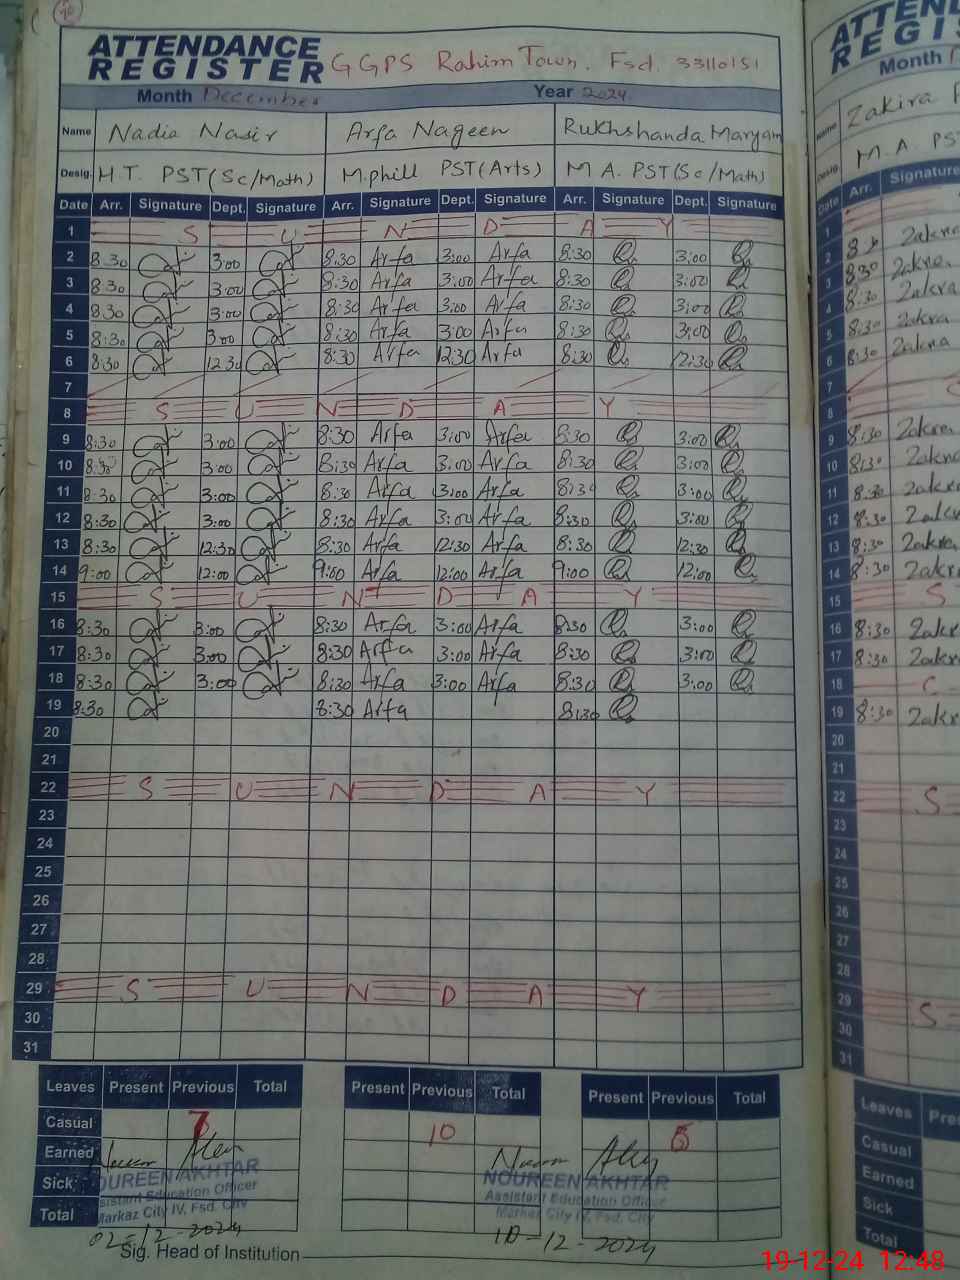 ATTENDANCE
REGISTER GGPS Rahim Town. Fsd. 33110151
Month December Year 2024
Name Nadia Nasir Arfa Nageen Rukhshanda Maryam
Desig. H.T. PST(Sc/Math) M.phill PST(Arts) M.A. PST(Sc/Math)
Date Arr. Signature Dept. Signature Arr. Signature Dept. Signature Arr. Signature Dept. Signature
1 S U N D A Y
2 8:30 3:00 8:30 Arfa 3:00 Arfa 8:30 3:00
3 8:30 3:00 8:30 Arfa 3:00 Arfa 8:30 3:00
4 8:30 3:00 8:30 Arfa 3:00 Arfa 8:30 3:00
5 8:30 3:00 8:30 Arfa 3:00 Arfa 8:30 3:00
6 8:30 12:30 8:30 Arfa 12:30 Arfa 8:30 12:30
7
8 S U N D A Y
9 8:30 3:00 8:30 Arfa 3:00 Arfa 8:30 3:00
10 8:30 3:00 8:30 Arfa 3:00 Arfa 8:30 3:00
11 8:30 3:00 8:30 Arfa 3:00 Arfa 8:30 3:00
12 8:30 3:00 8:30 Arfa 3:00 Arfa 8:30 3:00
13 8:30 12:30 8:30 Arfa 12:30 Arfa 8:30 12:30
14 9:00 12:00 9:00 Arfa 12:00 Arfa 9:00 12:00
15 S U N D A Y
16 8:30 3:00 8:30 Arfa 3:00 Arfa 8:30 3:00
17 8:30 3:00 8:30 Arfa 3:00 Arfa 8:30 3:00
18 8:30 3:00 8:30 Arfa 3:00 Arfa 8:30 3:00
19 8:30 8:30 Arfa 8:30
20
21
22 S U N D A Y
23
24
25
26
27
28
29 S U N D A Y
30
31
Leaves Present Previous Total Present Previous Total Present Previous Total
Casual 7 10
Earned
Sick NOUREEN AKHTAR NOUREEN AKHTAR
Assistant Education Officer Assistant Education Officer
Total Markaz City IV, Fsd. City Markaz City IV, Fsd. City
02-12-2024 10-12-2024
Sig. Head of Institution
ATTEN
REGIS
Month
Name Zakira
Desig. M.A. PST
Date Arr. Signature
1
2 8:30 Zakra
3 8:30 Zakra
4 8:30 Zakra
5 8:30 Zakra
6 8:30 Zakra
7
8
9 8:30 Zakra
10 8:30 Zakra
11 8:30 Zakra
12 8:30 Zakra
13 8:30 Zakra
14 8:30 Zakra
15 S
16 8:30 Zakra
17 8:30 Zakra
18 C
19 8:30 Zakra
20
21
22 S
23
24
25
26
27
28
29 S
30
31
Leaves Pres
Casual
Earned
Sick
Total
19-12-24 12:48